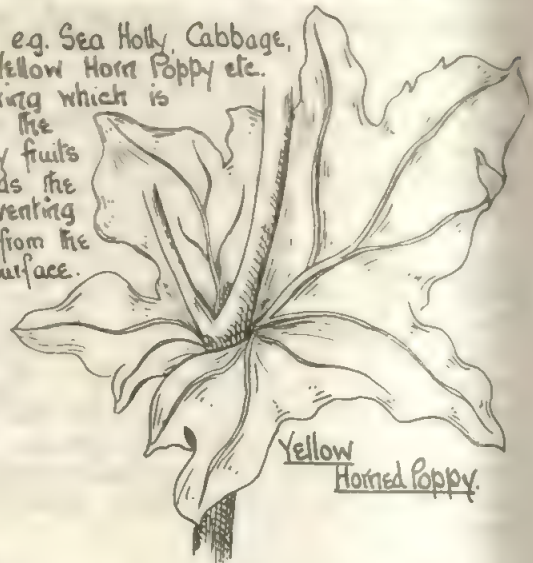 e.g. Sea Holly, Cabbage,
Yellow Horn Poppy etc.
ring which is
the
y fruits
ds the
venting
from the
surface.
Yellow
Horned Poppy.